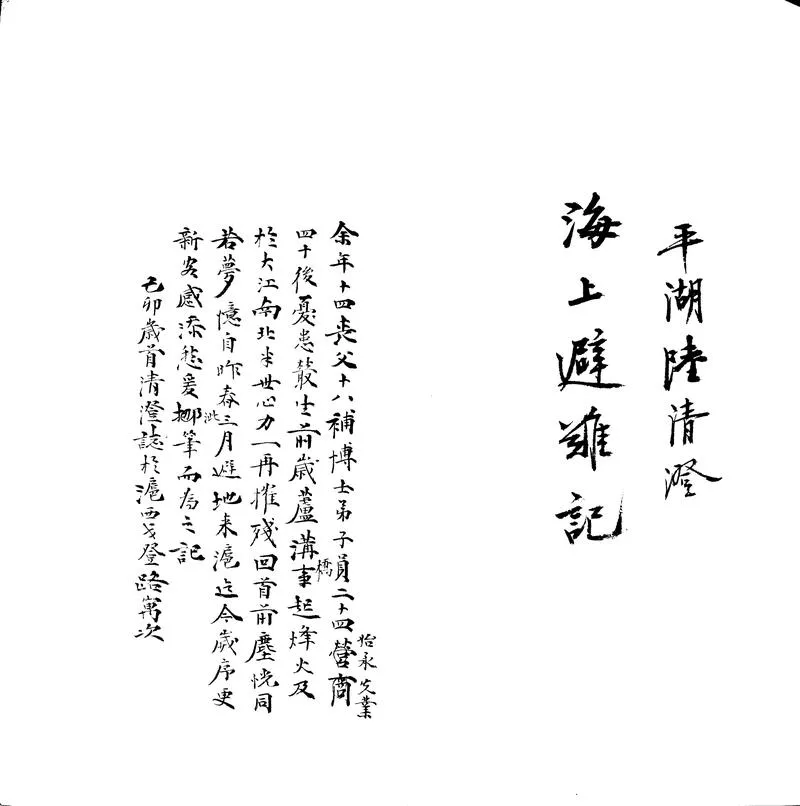 平湖陸清澄
海上避難記
余年十四喪父十八補博士弟子員二十四營商
怡永先業
四十後憂患叢生前歲蘆溝橋事起烽火及
於大江南北半世心力一再摧殘回首前塵恍同
若夢憶自昨春三月避地来滬迄今歲序更
新客感添愁爰擲筆而為之記
己卯歲首清澄誌於滬西戈登路寓次